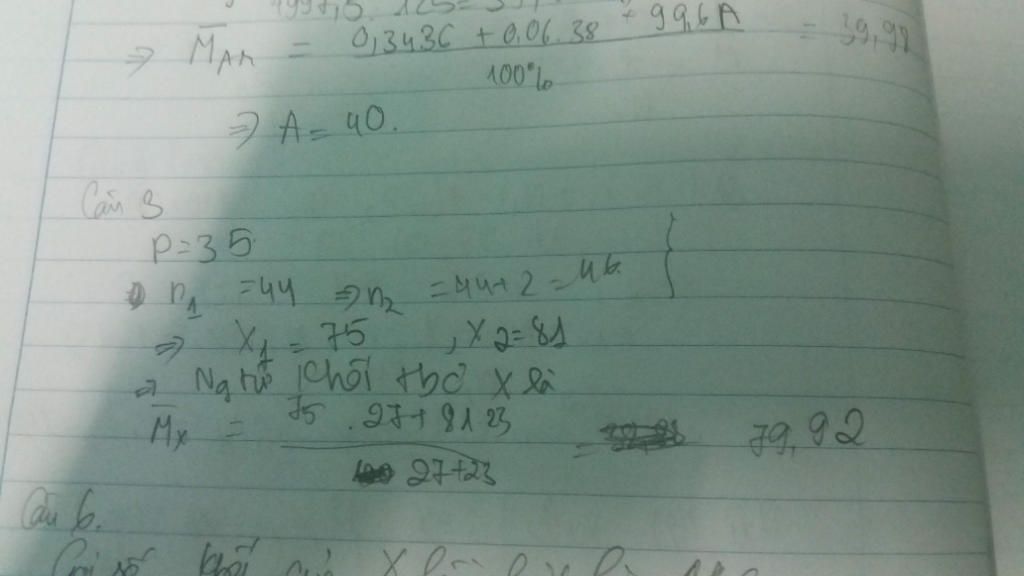 4997,5. 125=
⇒ M̅Ar = 0,3436 + 0,06.38 + 99,6A / 100% = 39,98
⇒ A = 40.
Câu 3
P=35
n1 =44 ⇒ n2 =44+2 =46.
⇒ X1 = 75 , X2=81
⇒ Ng tử khối tbở X là
M̅x = 75 .27+81 23 / 27+23 = 79,92
Câu 6.
X